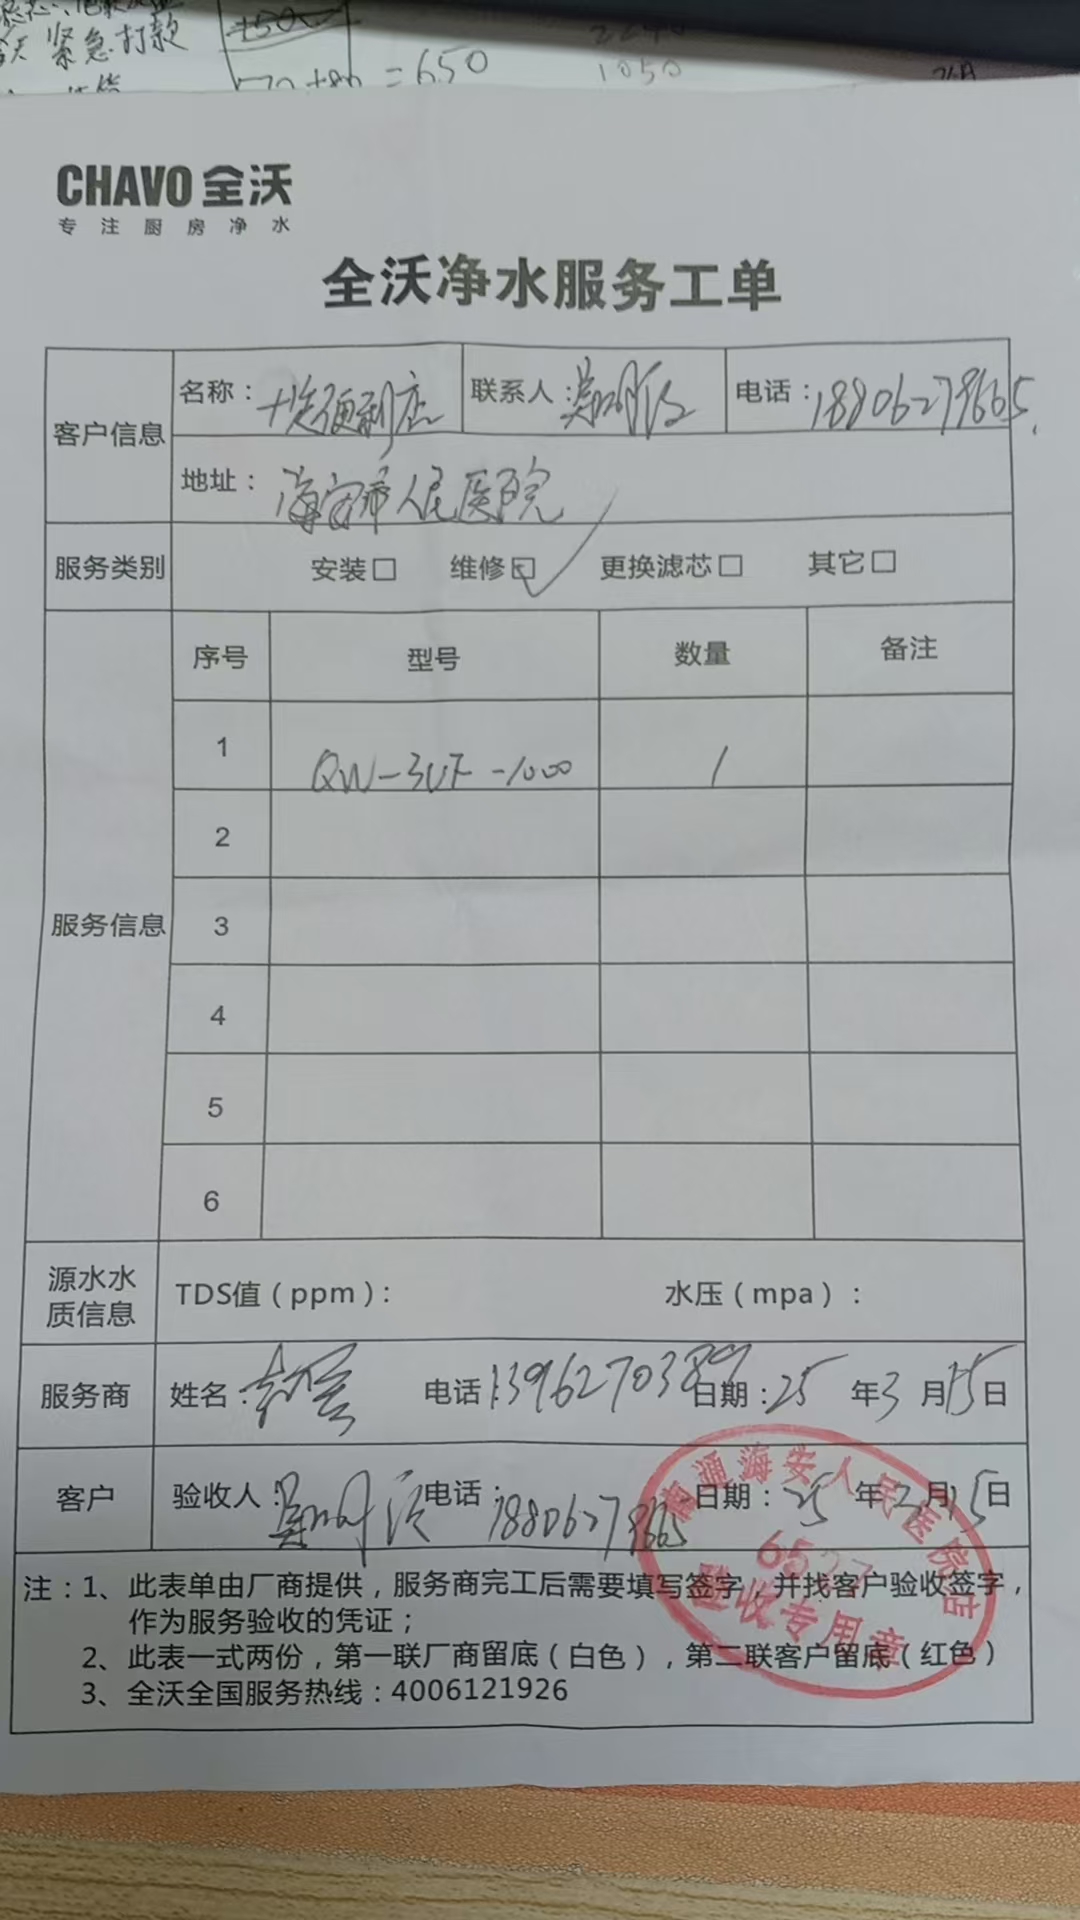 紧急打款
=650
1050
CHAVO 全沃
专注厨房净水
全沃净水服务工单
客户信息 名称：十足便利店 联系人： 电话：18806279665
地址：海安市人民医院
服务类别 安装□ 维修☑ 更换滤芯□ 其它□
服务信息 序号 型号 数量 备注
1 QW-3UF-1000 1
2
3
4
5
6
源水水质信息 TDS值（ppm）： 水压（mpa）：
服务商 姓名： 电话：1396270389 日期：25年3月15日
客户 验收人： 电话： 日期：25年3月15日
南通海安人民医院店
收专用章
注：1、此表单由厂商提供，服务商完工后需要填写签字，并找客户验收签字，
作为服务验收的凭证；
2、此表一式两份，第一联厂商留底（白色），第二联客户留底（红色）
3、全沃全国服务热线：4006121926